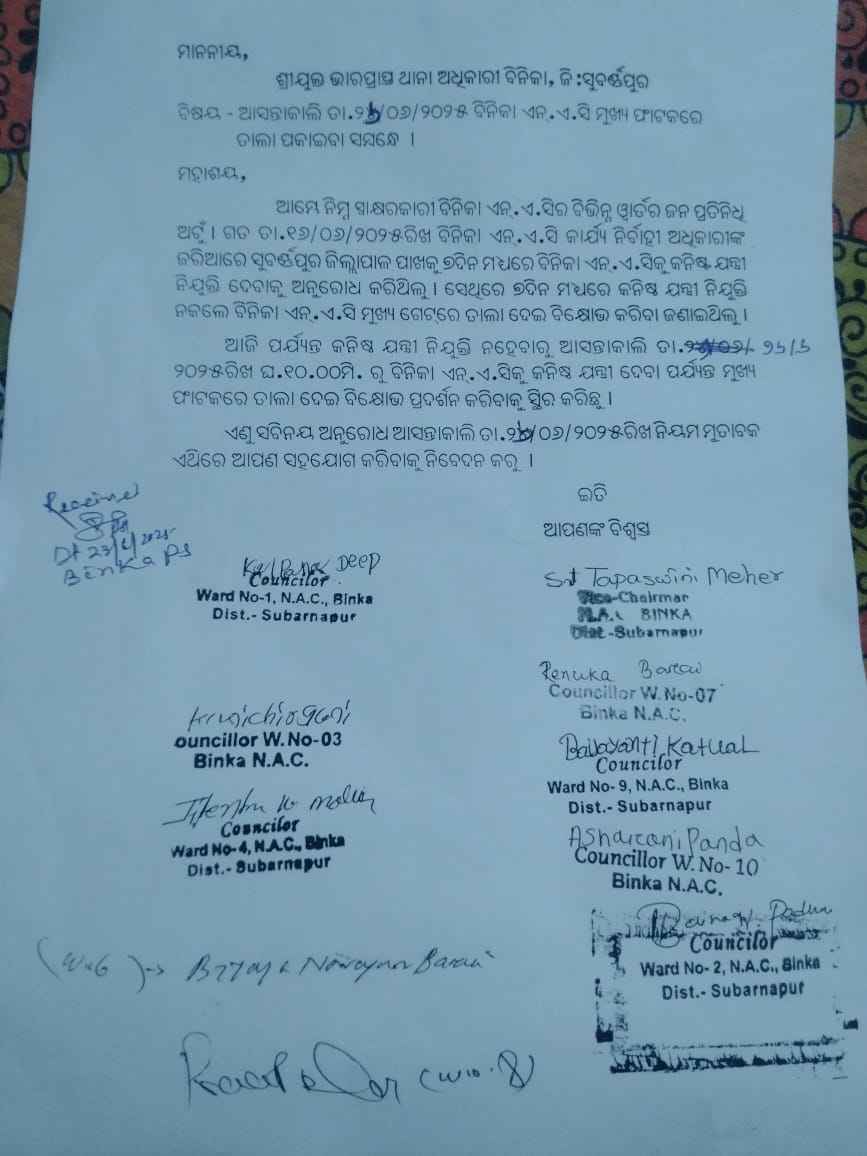 ମାନନୀୟ,
ଶ୍ରୀଯୁକ୍ତ ଭାରପ୍ରାପ୍ତ ଥାନା ଅଧିକାରୀ ବିନିକା, ଜି:ସୁବର୍ଣ୍ଣପୁର
ବିଷୟ - ଆସନ୍ତାକାଲି ତା.୨୬/୦୬/୨୦୨୫ ବିନିକା ଏନ୍.ଏ.ସି ମୁଖ୍ୟ ଫାଟକରେ
ତାଲା ପକାଇବା ସମନ୍ଧେ ।
ମହାଶୟ,
ଆମ୍ଭେ ନିମ୍ନ ସାକ୍ଷରକାରୀ ବିନିକା ଏନ୍.ଏ.ସିର ବିଭିନ୍ନ ୱାର୍ଡର ଜନ ପ୍ରତିନିଧି
ଅଟୁଁ । ଗତ ତା.୧୬/୦୬/୨୦୨୫ରିଖ ବିନିକା ଏନ୍.ଏ.ସି କାର୍ଯ୍ୟ ନିର୍ବାହୀ ଅଧିକାରୀଙ୍କ
ଜରିଆରେ ସୁବର୍ଣ୍ଣପୁର ଜିଲ୍ଲାପାଳ ପାଖକୁ ୭ଦିନ ମଧ୍ୟରେ ବିନିକା ଏନ୍.ଏ.ସିକୁ କନିଷ୍ଠ ଯନ୍ତ୍ରୀ
ନିଯୁକ୍ତି ଦେବାକୁ ଅନୁରୋଧ କରିଥିଲୁ । ସେଥିରେ ୭ଦିନ ମଧ୍ୟରେ କନିଷ୍ଠ ଯନ୍ତ୍ରୀ ନିଯୁକ୍ତି
ନକଲେ ବିନିକା ଏନ୍.ଏ.ସି ମୁଖ୍ୟ ଗେଟ୍‌ରେ ତାଲା ଦେଇ ବିକ୍ଷୋଭ କରିବା ଜଣାଇଥିଲୁ ।
ଆଜି ପର୍ଯ୍ୟନ୍ତ କନିଷ୍ଠ ଯନ୍ତ୍ରୀ ନିଯୁକ୍ତି ନହେବାରୁ ଆସନ୍ତାକାଲି ତା.
୨୦୨୫ରିଖ ଘ.୧୦.୦୦ମି. ରୁ ବିନିକା ଏନ୍.ଏ.ସିକୁ କନିଷ୍ଠ ଯନ୍ତ୍ରୀ ଦେବା ପର୍ଯ୍ୟନ୍ତ ମୁଖ୍ୟ
ଫାଟକରେ ତାଲା ଦେଇ ବିକ୍ଷୋଭ ପ୍ରଦର୍ଶନ କରିବାକୁ ସ୍ଥିର କରିଛୁ ।
ଏଣୁ ସବିନୟ ଅନୁରୋଧ ଆସନ୍ତାକାଲି ତା.୨୬/୦୬/୨୦୨୫ରିଖ ନିୟମ ମୁତାବକ
ଏଥିରେ ଆପଣ ସହଯୋଗ କରିବାକୁ ନିବେଦନ କରୁ ।
ଇତି
ଆପଣଙ୍କ ବିଶ୍ୱସ୍ତ
Received
Dt 23/6/2025
Binka PS
Kalpana Deep
Councilor
Ward No-1, N.A.C., Binka
Dist.- Subarnapur
Smt Tapaswini Meher
Vice-Chairman
N.A.C BINKA
Dist-Subarnapur
Renuka Barai
Councillor W.No-07
Binka N.A.C.
ouncillor W.No-03
Binka N.A.C.
Baijayanti Katual
Councilor
Ward No- 9, N.A.C., Binka
Dist.- Subarnapur
Councilor
Ward No-4, N.A.C., Binka
Dist.- Subarnapur
Asharani Panda
Councillor W.No- 10
Binka N.A.C.
Councilor
Ward No- 2, N.A.C., Binka
Dist.- Subarnapur
Narayan Barai